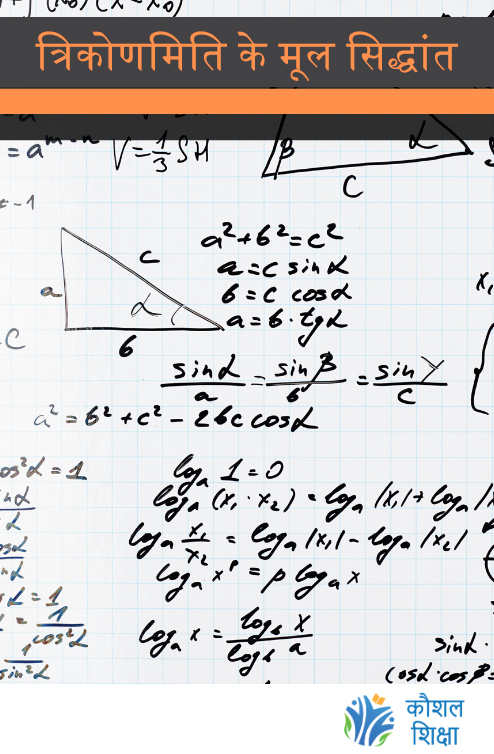 त्रिकोणमिति के मूल सिद्धांत
= a^m-n V = 1/3 SH
β α
C
a c α b
a² + b² = c²
a = c sin α
b = c cos α
a = b · tg α
sin α / a = sin β / b = sin γ / c
a² = b² + c² - 2bc cos α
os² α = 1
log_a 1 = 0
log_a (x₁ · x₂) = log_a |x₁| + log_a |x
log_a x₁/x₂ = log_a |x₁| - log_a |x₂|
log_a x^p = p log_a x
1/cos² α
log_a x = log_b x / log_b a
sin² α
sin α ·
cos α · cos β =
कौशल
शिक्षा